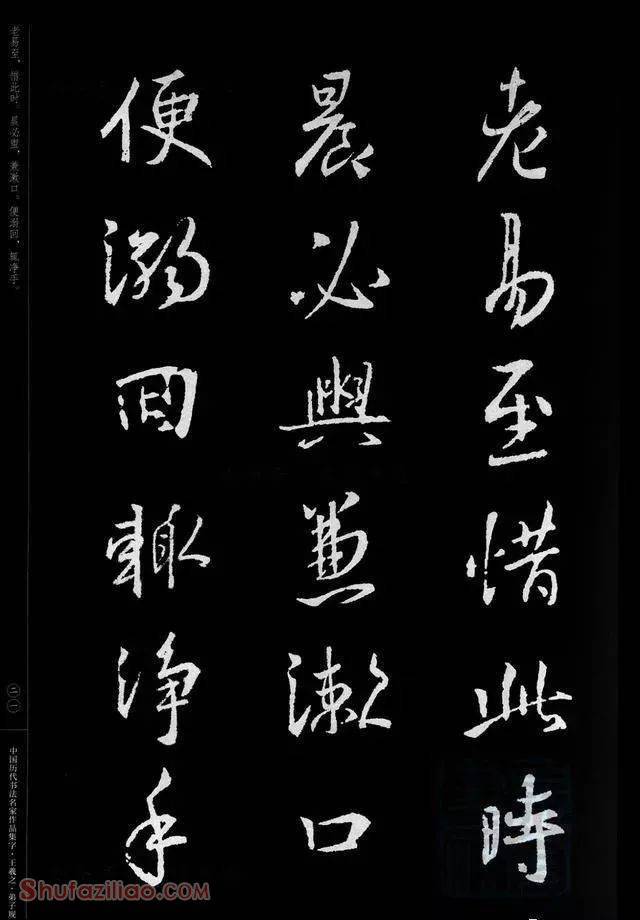 老易至惜此時
晨必興兼漱口
便溺回輒净手
老易至，惜此时。晨必盥，兼漱口。便溺回，辄净手。
二一
中国历代书法名家作品集字·王羲之·弟子规
Shufaziliao.com